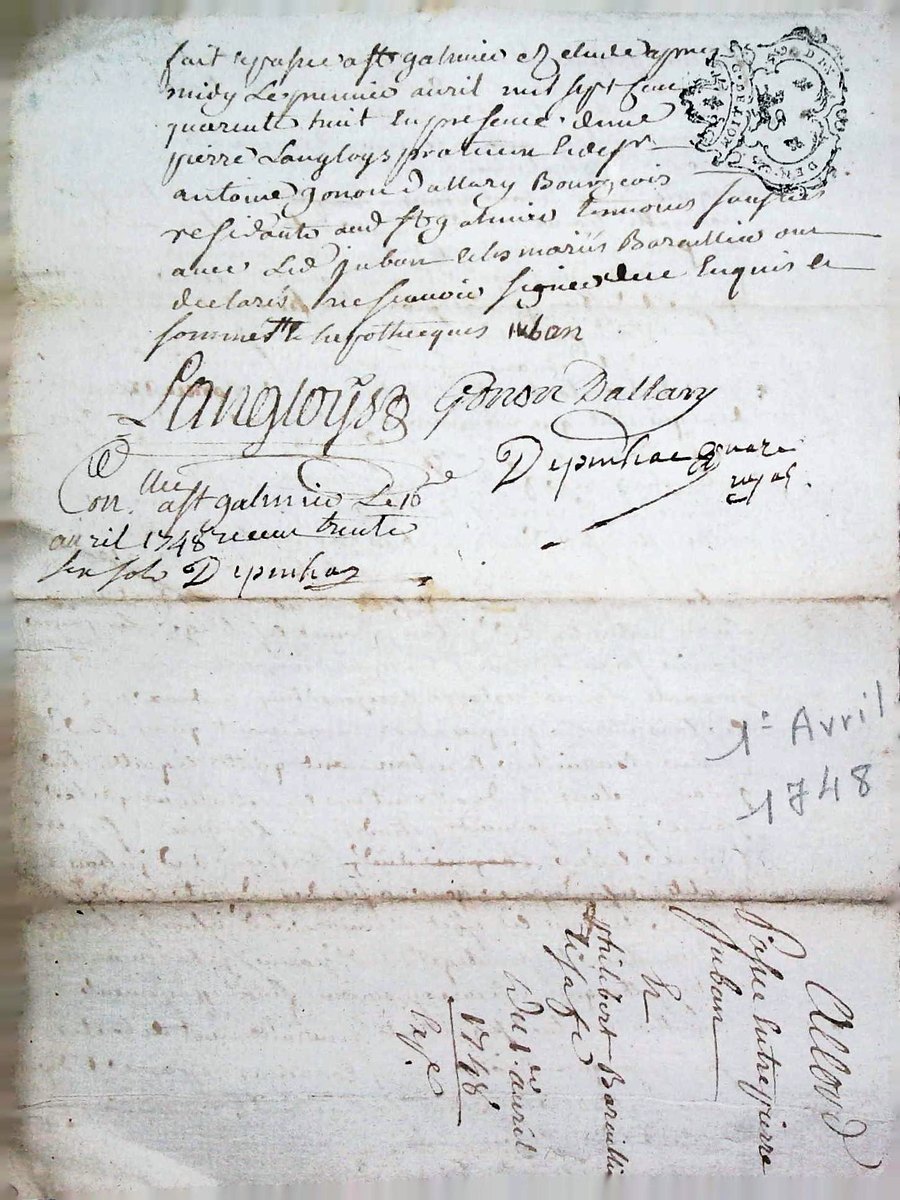 fait et passé a st galmier et etude apres
midy le premier avril mil sept cent
quarente huit en presence de me
pierre Langloys praticien et de sr
antoine gonon dallary Bourgeois
residants aud st galmier temoins soussignés
avec led juban et les mariés Baraillier ont
declarés ne scavoir signer de ce enquis et
sommés hypotheques juban
Langloys Gonon Dallary
Depinhac
Con. a st galmier le 16e
avril 1748 receu trente
six sols Depinhac
1er Avril
1748
Allord
Passé entre pierre
Juban
Et
philibert Baraillier
&sa fe
Du 1er avril
1748